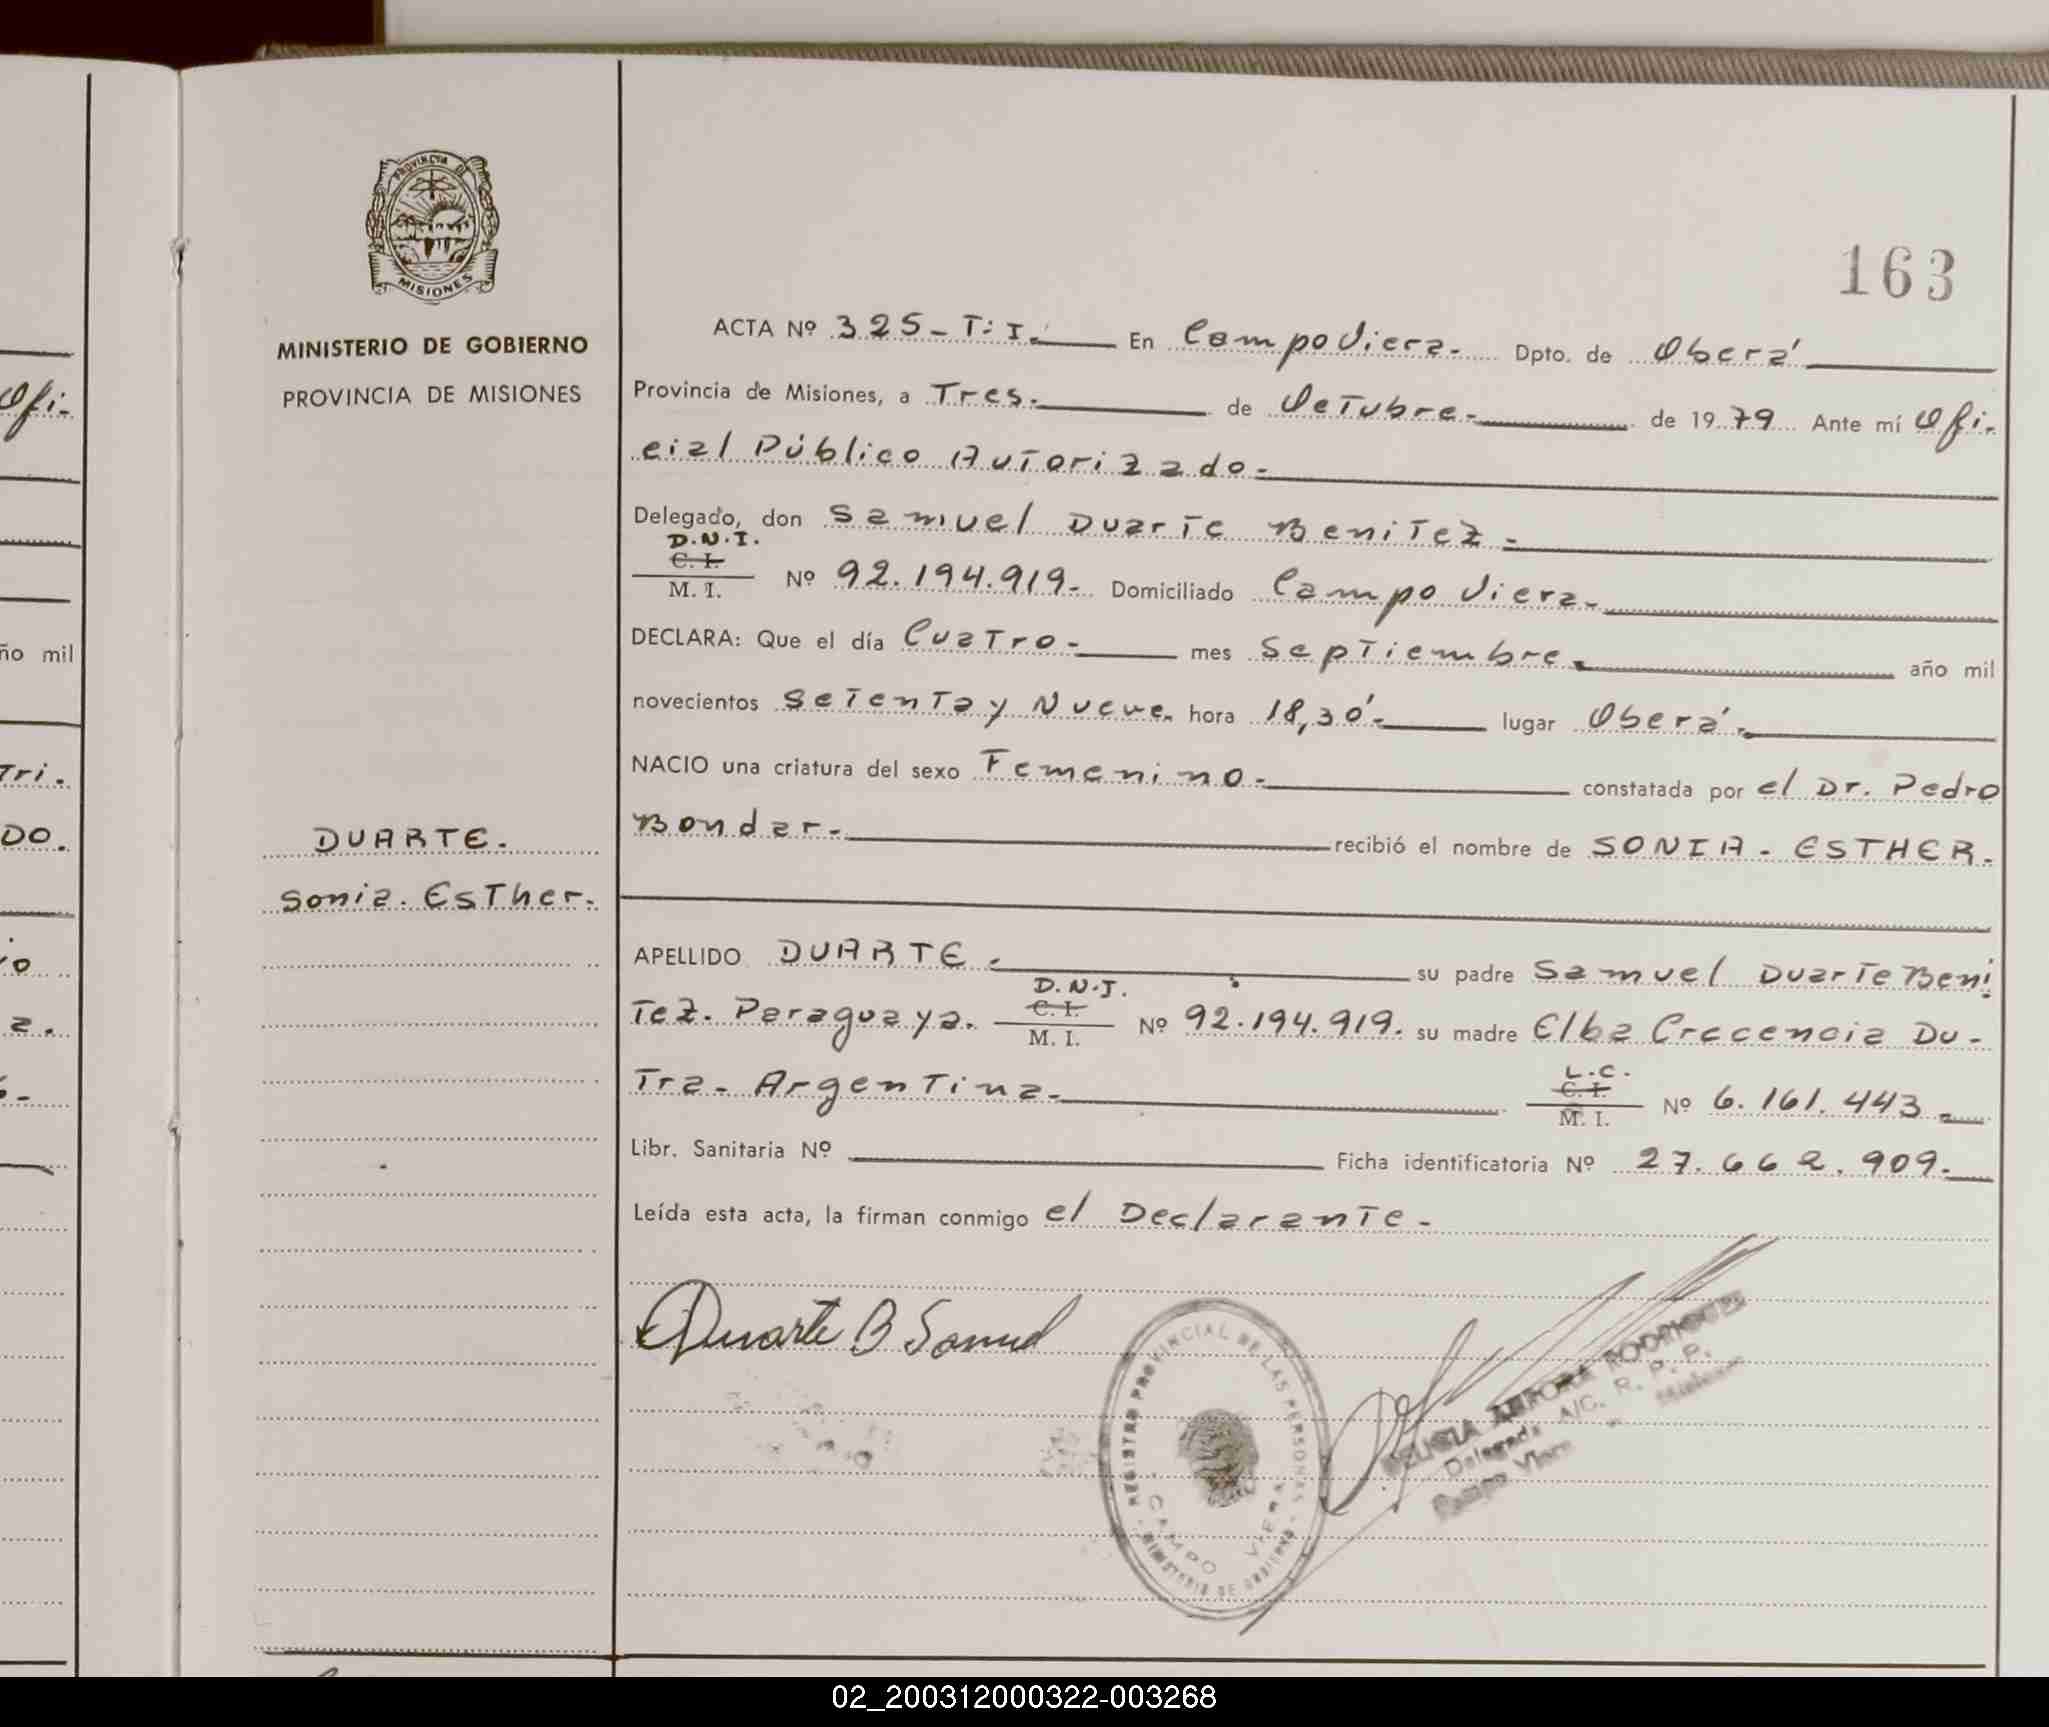 PROVINCIA DE
MISIONES
MINISTERIO DE GOBIERNO
PROVINCIA DE MISIONES
DUARTE.
Sonia. Esther.
163
ACTA Nº 325- T: I.- En Campo Viera.- Dpto. de Oberá
Provincia de Misiones, a Tres.- de Octubre.- de 1979 Ante mí Ofi-
cial Público Autorizado.-
Delegado, don Samuel Duarte Benitez.-
D.N.I.
C. I.
M. I. Nº 92.194.919.- Domiciliado Campo Viera.-
DECLARA: Que el día Cuatro.- mes Septiembre.- año mil
novecientos Setenta y Nueve. hora 18,30'.- lugar Oberá.-
NACIO una criatura del sexo Femenino.- constatada por el Dr. Pedro
Bondar.- recibió el nombre de SONIA - ESTHER.-
APELLIDO DUARTE.- su padre Samuel Duarte Beni
tez. Paraguaya. D.N.I. C. I. M. I. Nº 92.194.919. su madre Elba Crecencia Du-
tra. Argentina.- L.C. C. I. M. I. Nº 6.161.443.-
Libr. Sanitaria Nº Ficha identificatoria Nº 27.662.909.-
Leída esta acta, la firman conmigo el Declarante.-
Duarte B Samuel
REGISTRO PROVINCIAL DE LAS PERSONAS
CAMPO VIERA
MINISTERIO DE GOBIERNO
AURORA RODRIGUEZ
Delegada A/C. R. P. P.
Campo Viera - Misiones
Ofi-
ño mil
Tri.
DO.
02_200312000322-003268